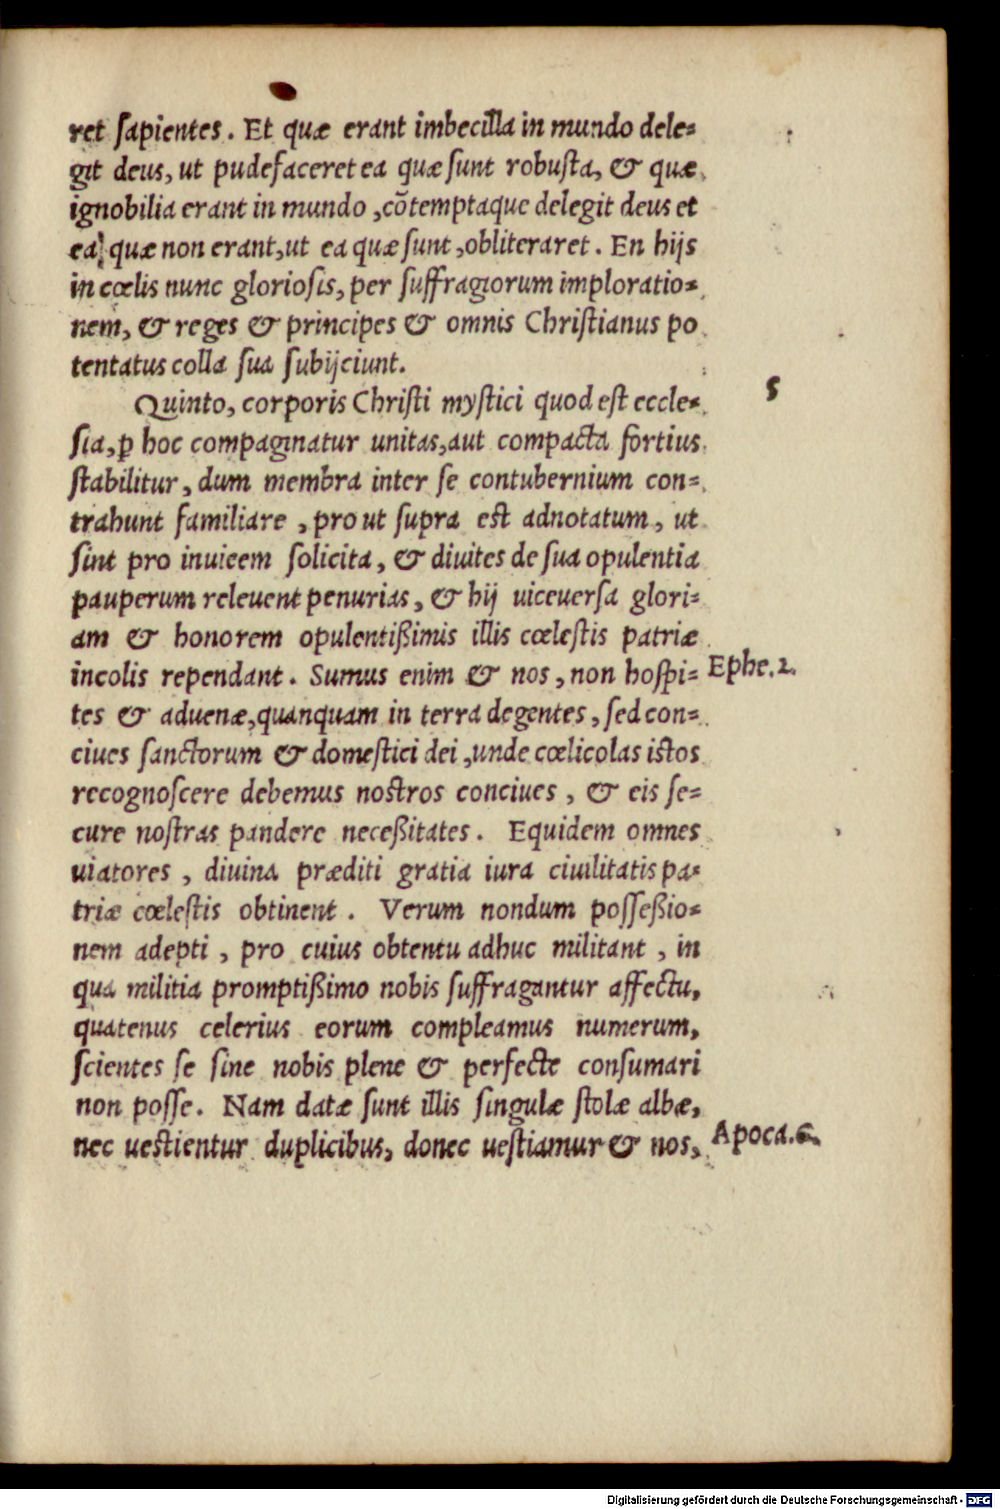 ret ſapientes. Et quæ erant imbecilla in mundo dele⸗
git deus, ut pudefaceret ea quæ ſunt robuſta, & quæ
ignobilia erant in mundo, cõtemptaque delegit deus et
ea, quæ non erant, ut ea quæ ſunt, obliteraret. En hijs
in cœlis nunc glorioſis, per ſuffragiorum imploratio⸗
nem, & reges & principes & omnis Chriſtianus po
tentatus colla ſua ſubijciunt.
Quinto, corporis Chriſti myſtici quod est eccle⸗
5
ſia, ꝑ hoc compaginatur unitas, aut compacta fortius
ſtabilitur, dum membra inter ſe contubernium con⸗
trahunt familiare, prout ſupra est adnotatum, ut
ſint pro inuicem ſolicita, & diuites de ſua opulentia
pauperum releuent penurias, & hij uiceuerſa glori⸗
am & honorem opulentißimis illis cœlestis patriæ
incolis rependant. Sumus enim & nos, non hoſpi⸗
Ephe. 2.
tes & aduenæ, quanquam in terra degentes, ſed con⸗
ciues ſanctorum & domeſtici dei, unde cœlicolas istos
recognoſcere debemus nostros conciues, & eis ſe⸗
cure noſtras pandere neceßitates. Equidem omnes
uiatores, diuina præditi gratia iura ciuilitatis pa⸗
triæ cœleſtis obtinent. Verum nondum poſſeßio⸗
nem adepti, pro cuius obtentu adhuc militant, in
qua militia promptißimo nobis ſuffragantur affectu,
quatenus celerius eorum compleamus numerum,
ſcientes ſe ſine nobis plene & perfecte conſumari
non poſſe. Nam datæ ſunt illis ſingulæ ſtolæ albæ,
nec uestientur duplicibus, donec ueſtiamur & nos,
Apoca. 6.
Digitalisierung gefördert durch die Deutsche Forschungsgemeinschaft - DFG